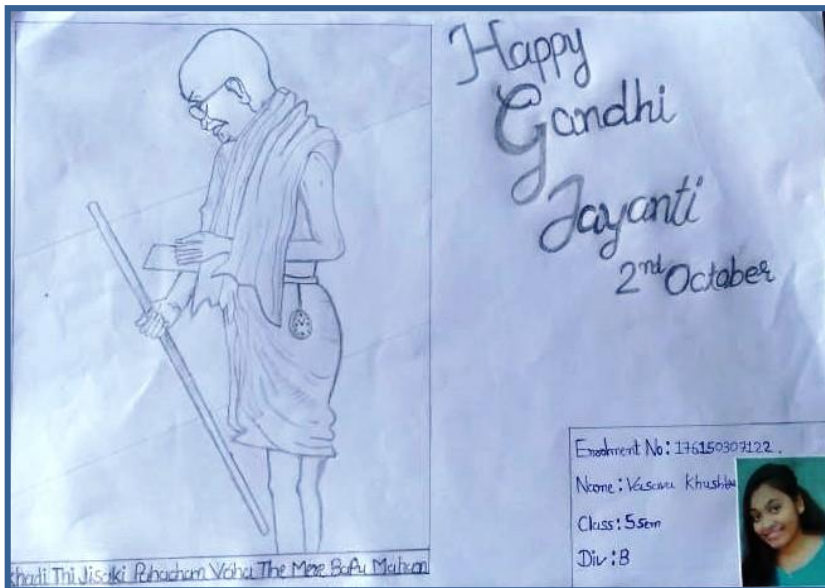 Happy
Gandhi
Jayanti
2nd October
Khadi Thi Jisaki Pahacham Voha The Mere Bapu Mahan
Enrolment No: 176150307122.
Name: Vasava Khushbu
Class: 5 sem
Div: B